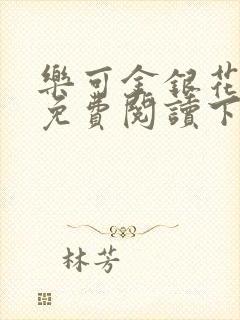 樂可金銀花
免費閱讀下
林芳